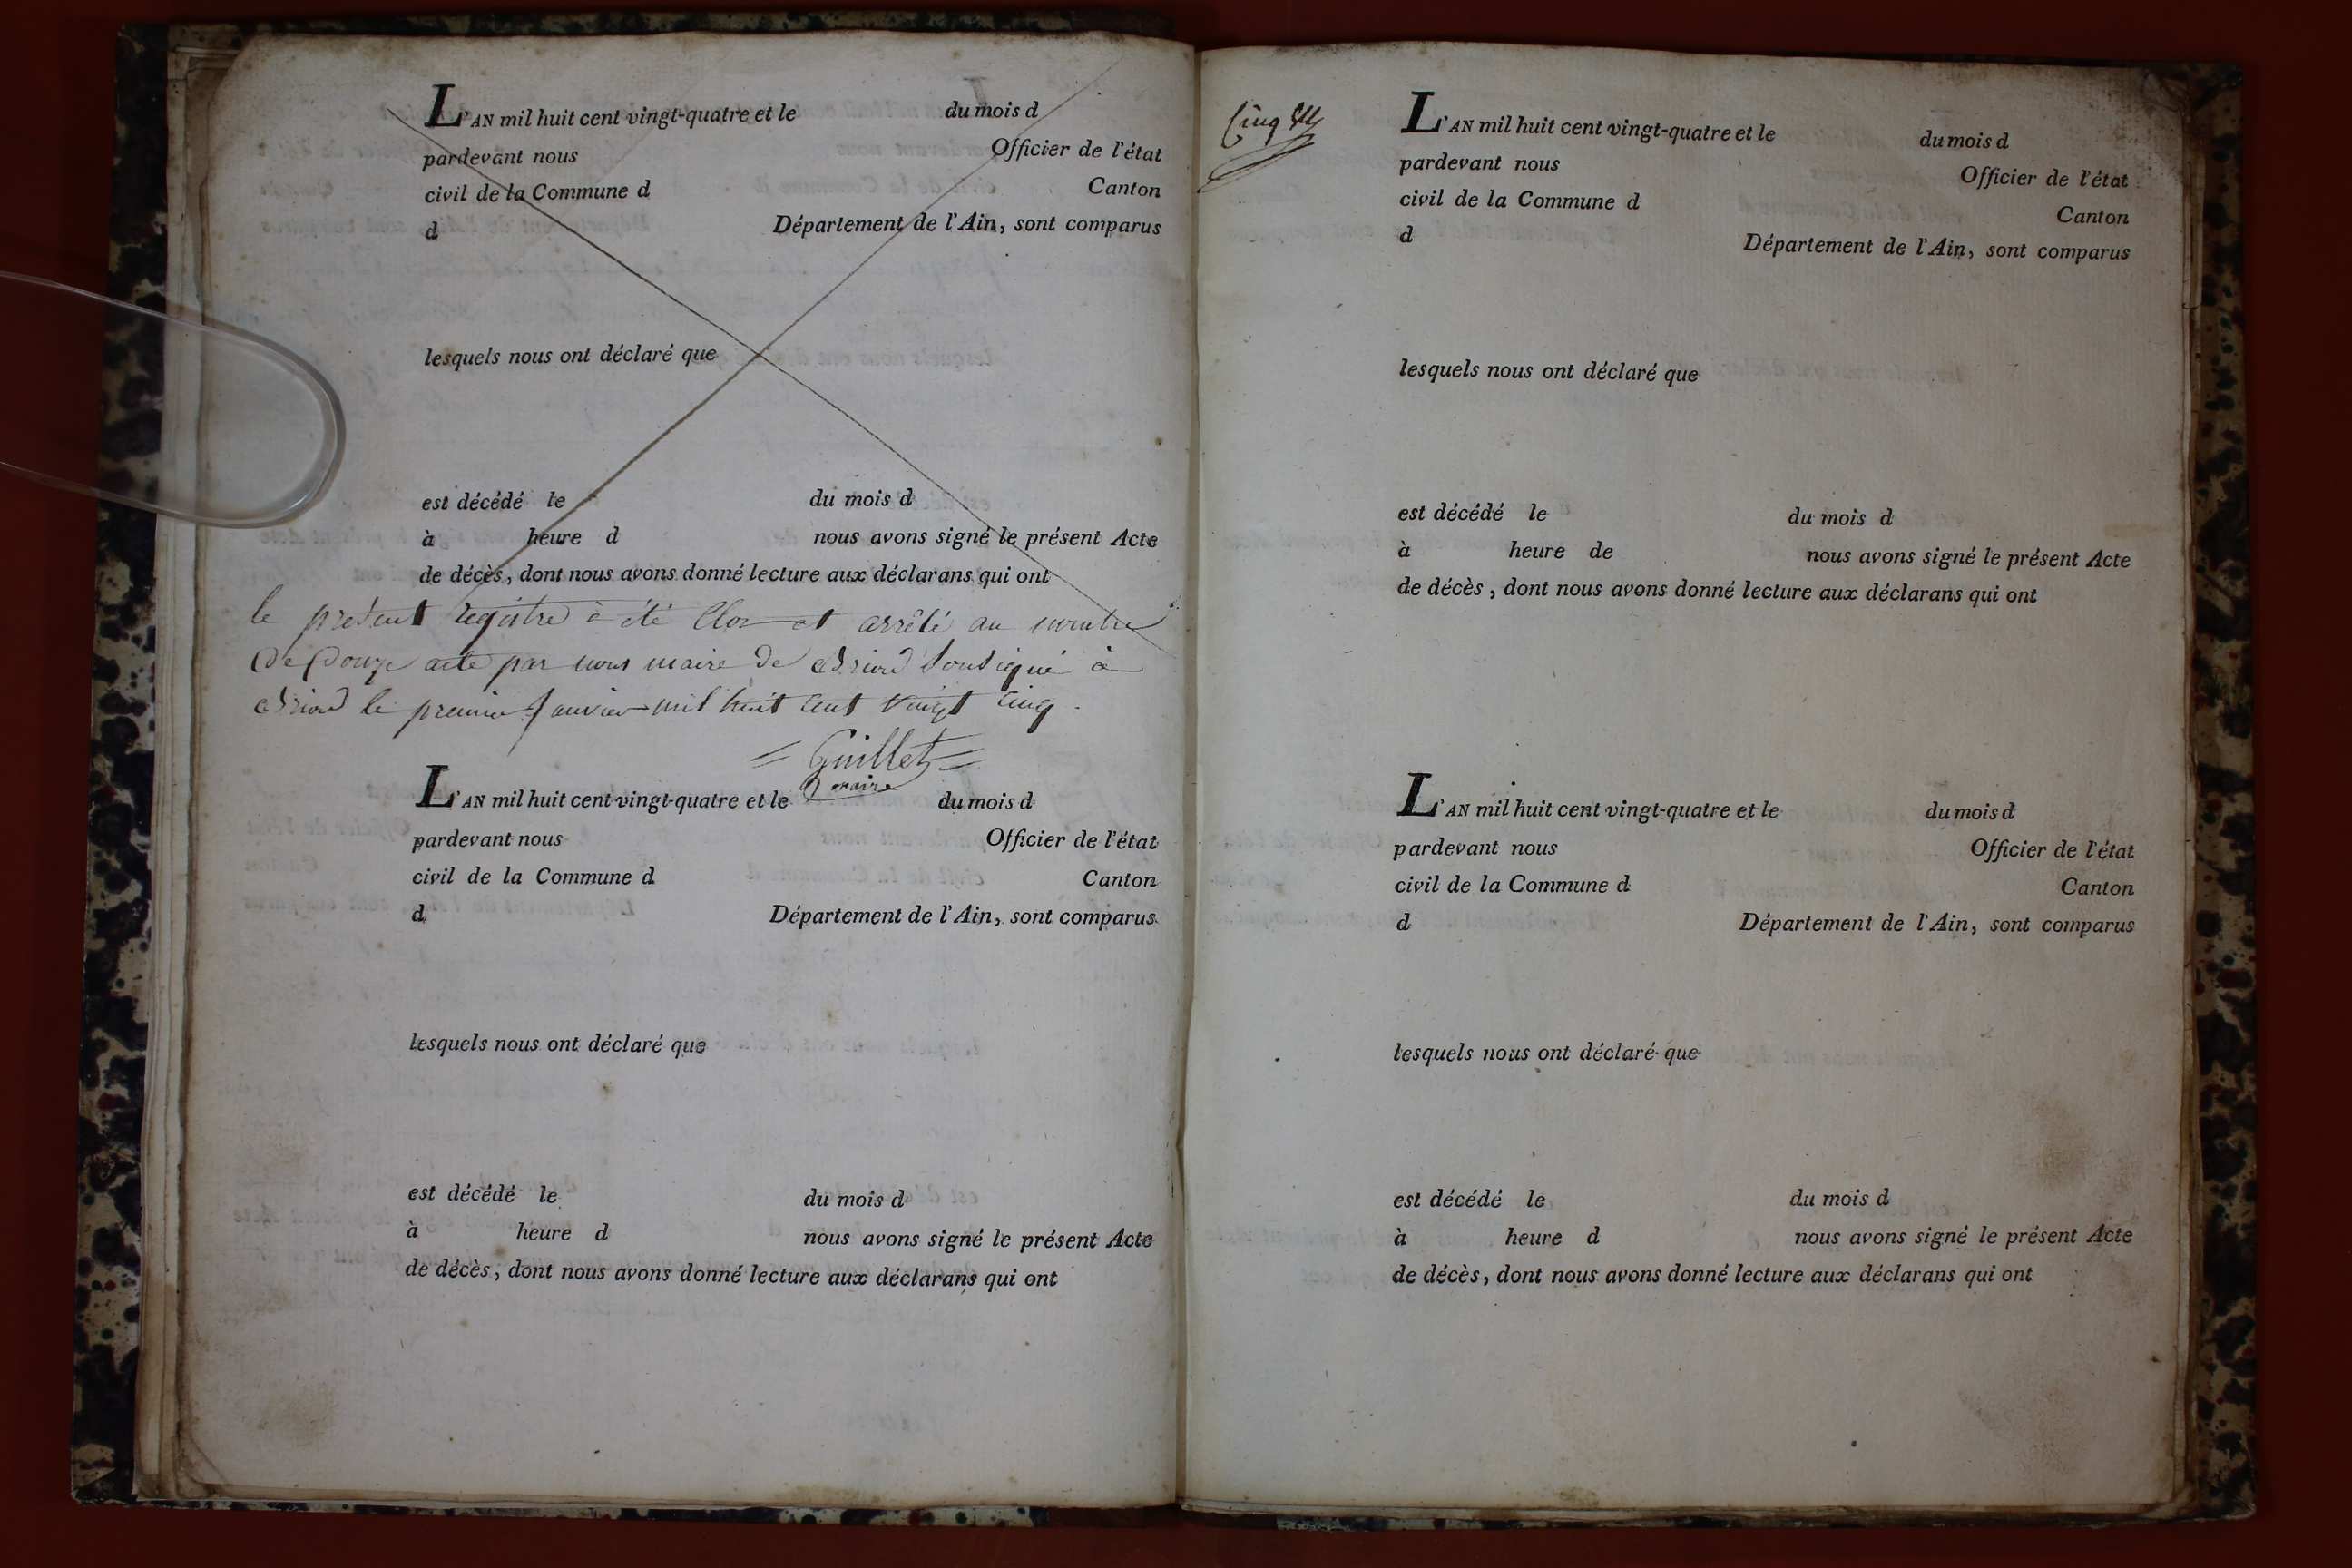 L'AN mil huit cent vingt-quatre et le du mois d
pardevant nous Officier de l'état
civil de la Commune d Canton
d Département de l'Ain, sont comparus
lesquels nous ont déclaré que
est décédé le du mois d
à heure d nous avons signé le présent Acte
de décès, dont nous avons donné lecture aux déclarans qui ont
le présent registre à été Clos et arrêté au nombre
De Douze acte par nous maire de Briord Soussigné à
Briord le premier Janvier mil huit Cent Vingt Cinq.
= Guillet =
maire
L'AN mil huit cent vingt-quatre et le du mois d
pardevant nous Officier de l'état
civil de la Commune d Canton
d Département de l'Ain, sont comparus
lesquels nous ont déclaré que
est décédé le du mois d
à heure d nous avons signé le présent Acte
de décès, dont nous avons donné lecture aux déclarans qui ont
Cinq
L'AN mil huit cent vingt-quatre et le du mois d
pardevant nous Officier de l'état
civil de la Commune d Canton
d Département de l'Ain, sont comparus
lesquels nous ont déclaré que
est décédé le du mois d
à heure de nous avons signé le présent Acte
de décès, dont nous avons donné lecture aux déclarans qui ont
L'AN mil huit cent vingt-quatre et le du mois d
pardevant nous Officier de l'état
civil de la Commune d Canton
d Département de l'Ain, sont comparus
lesquels nous ont déclaré que
est décédé le du mois d
à heure d nous avons signé le présent Acte
de décès, dont nous avons donné lecture aux déclarans qui ont